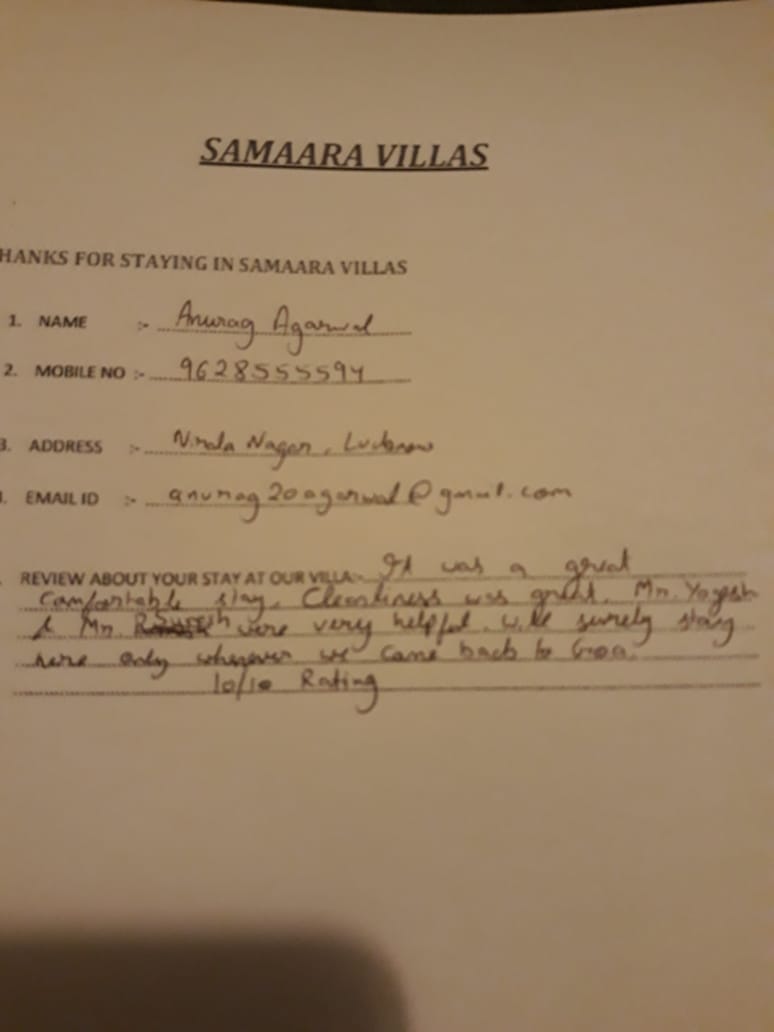 SAMAARA VILLAS
HANKS FOR STAYING IN SAMAARA VILLAS
1. NAME :- Anurag Agarwal
2. MOBILE NO :- 9628555594
3. ADDRESS :- Nirala Nagar, Lucknow
. EMAIL ID :- anurag20agarwal@gmail.com
. REVIEW ABOUT YOUR STAY AT OUR VILLA:- It was a great
comfortable stay. Cleanliness was great. Mr. Yogesh
& Mr. were very helpful. will surely stay
here only whenever we come back to Goa.
10/10 Rating